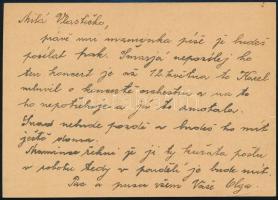 Milá Vlastičko,
právě mi maminka píše je budeš
posílat frak. Smasja neposílej ho
ten koncert je až 12. května to Karel
mluvil o koncertě orchestru a na to
ho nepotřebuje a já to zmotala.
Snad nebude pozdě a budeš ho mít
ještě doma.
Mamince řekni že ji ty kuřata pošlu
v sobotu tedy v pondělí je bude mít.
Pac a pusu všem Vaše Olga.